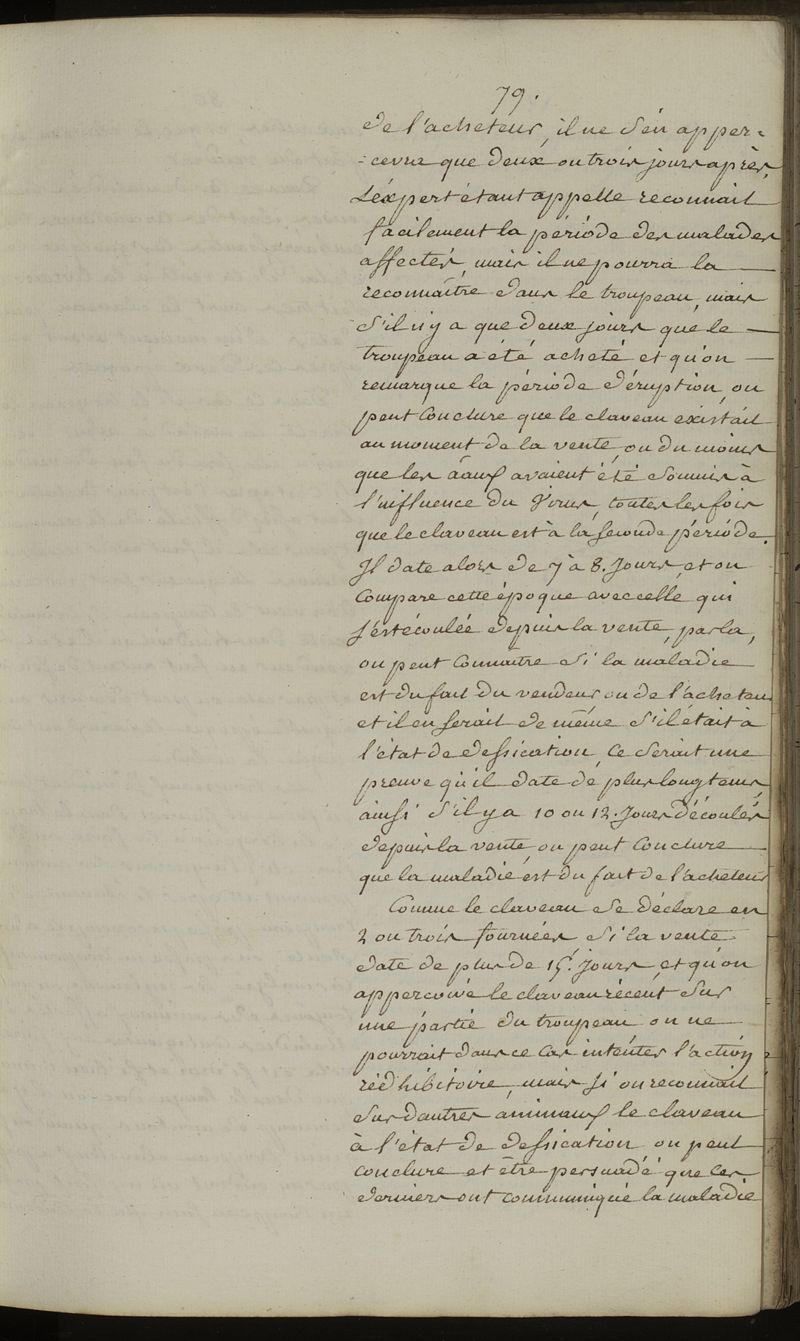 79.
de l'acheteur, il ne s'en apper-
-cevra que deux ou trois jours après,
L'éxpert étant appellé reconnait
facilement la période des malades
affectés, mais il ne pourra la
reconnaître dans le troupeau, mais
s'il n'y a que deux jours que le
troupeau a été acheté et qu'on
remarque la période d'éruption, on
peut conclure que le claveau existait
au moment de la vente, ou du moins
que les avaient été soumis à
l'influence du Virus, toutes les fois
que le claveau est à la seconde période.
Il date alors de 7 à 8. Jours, et on
Compare cette époque avec celle qui
s'est écoulée depuis la vente, par la,
on peut Connaitre si la maladie
est du fait du vendeur ou de l'acheteur
et il en serait de même s'il était à
l'état de dessication, Ce serait une
preuve qu'il date de plus longtems,
ainsi s'il y a 10 ou 12. Jours découlés
depuis la vente, on peut Conclure
que la maladie est du fait de l'acheteur
Comme le claveau se déclare en
2 ou trois fournées si la vente
date de plus de 15. Jours, et qu'on
appercoive le claveau récent sur
une partie du troupeau on ne
pourrait dans ce Cas intenter l'action
rédhibitoire, mais si on reconnait
sur d'autres animaux le claveau
à l'état de dessication on peut
conclure et être persuadé que ces
derniers ont communiqué la maladie